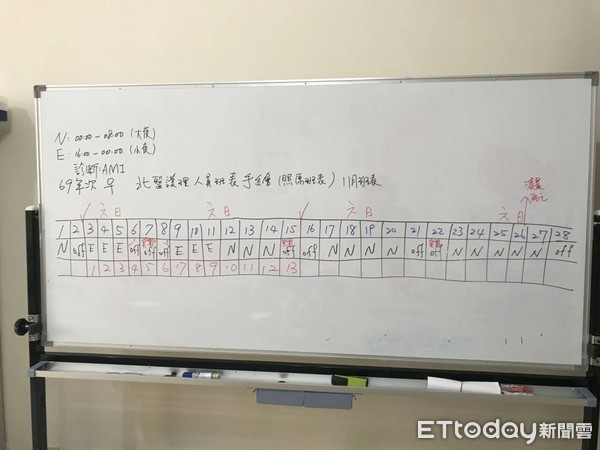 N: 00:00-08:00 (大夜)
E: 16:00-00:00 (小夜)
診斷:AMI
69年次 早 北醫護理人員班表手繪(照原班表) 11月班表
六日 六日 六日 六日
1 2 3 4 5 6 7 8 9 10 11 12 13 14 15 16 17 18 19 20 21 22 23 24 25 26 27 28
N off E E E off off off E E E N N N off off N N N N off off N N N N N off
1 2 3 4 5 6 7 8 9 10 11 12 13
ETtoday新聞雲